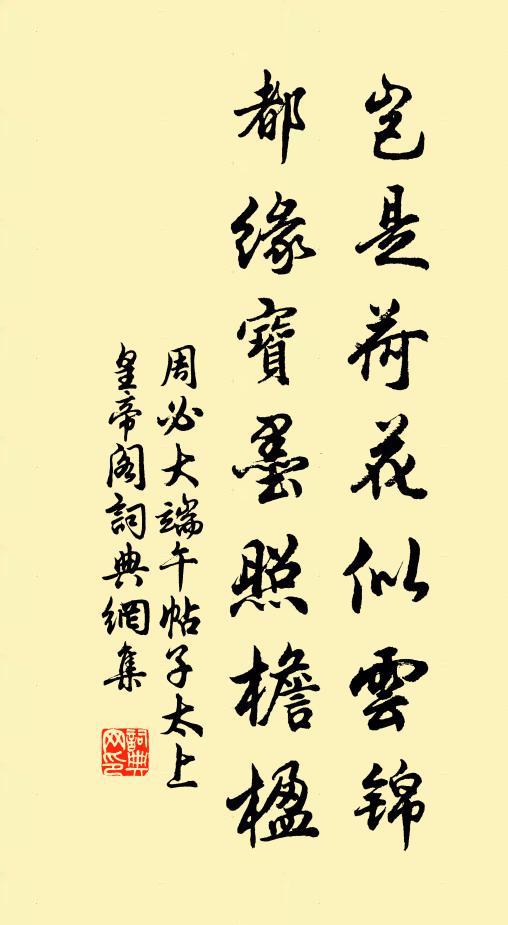 岂是荷花似雲锦
都缘寶墨照檐楹
周必大端午帖子太上
皇帝阁詞典網集
詞典网印